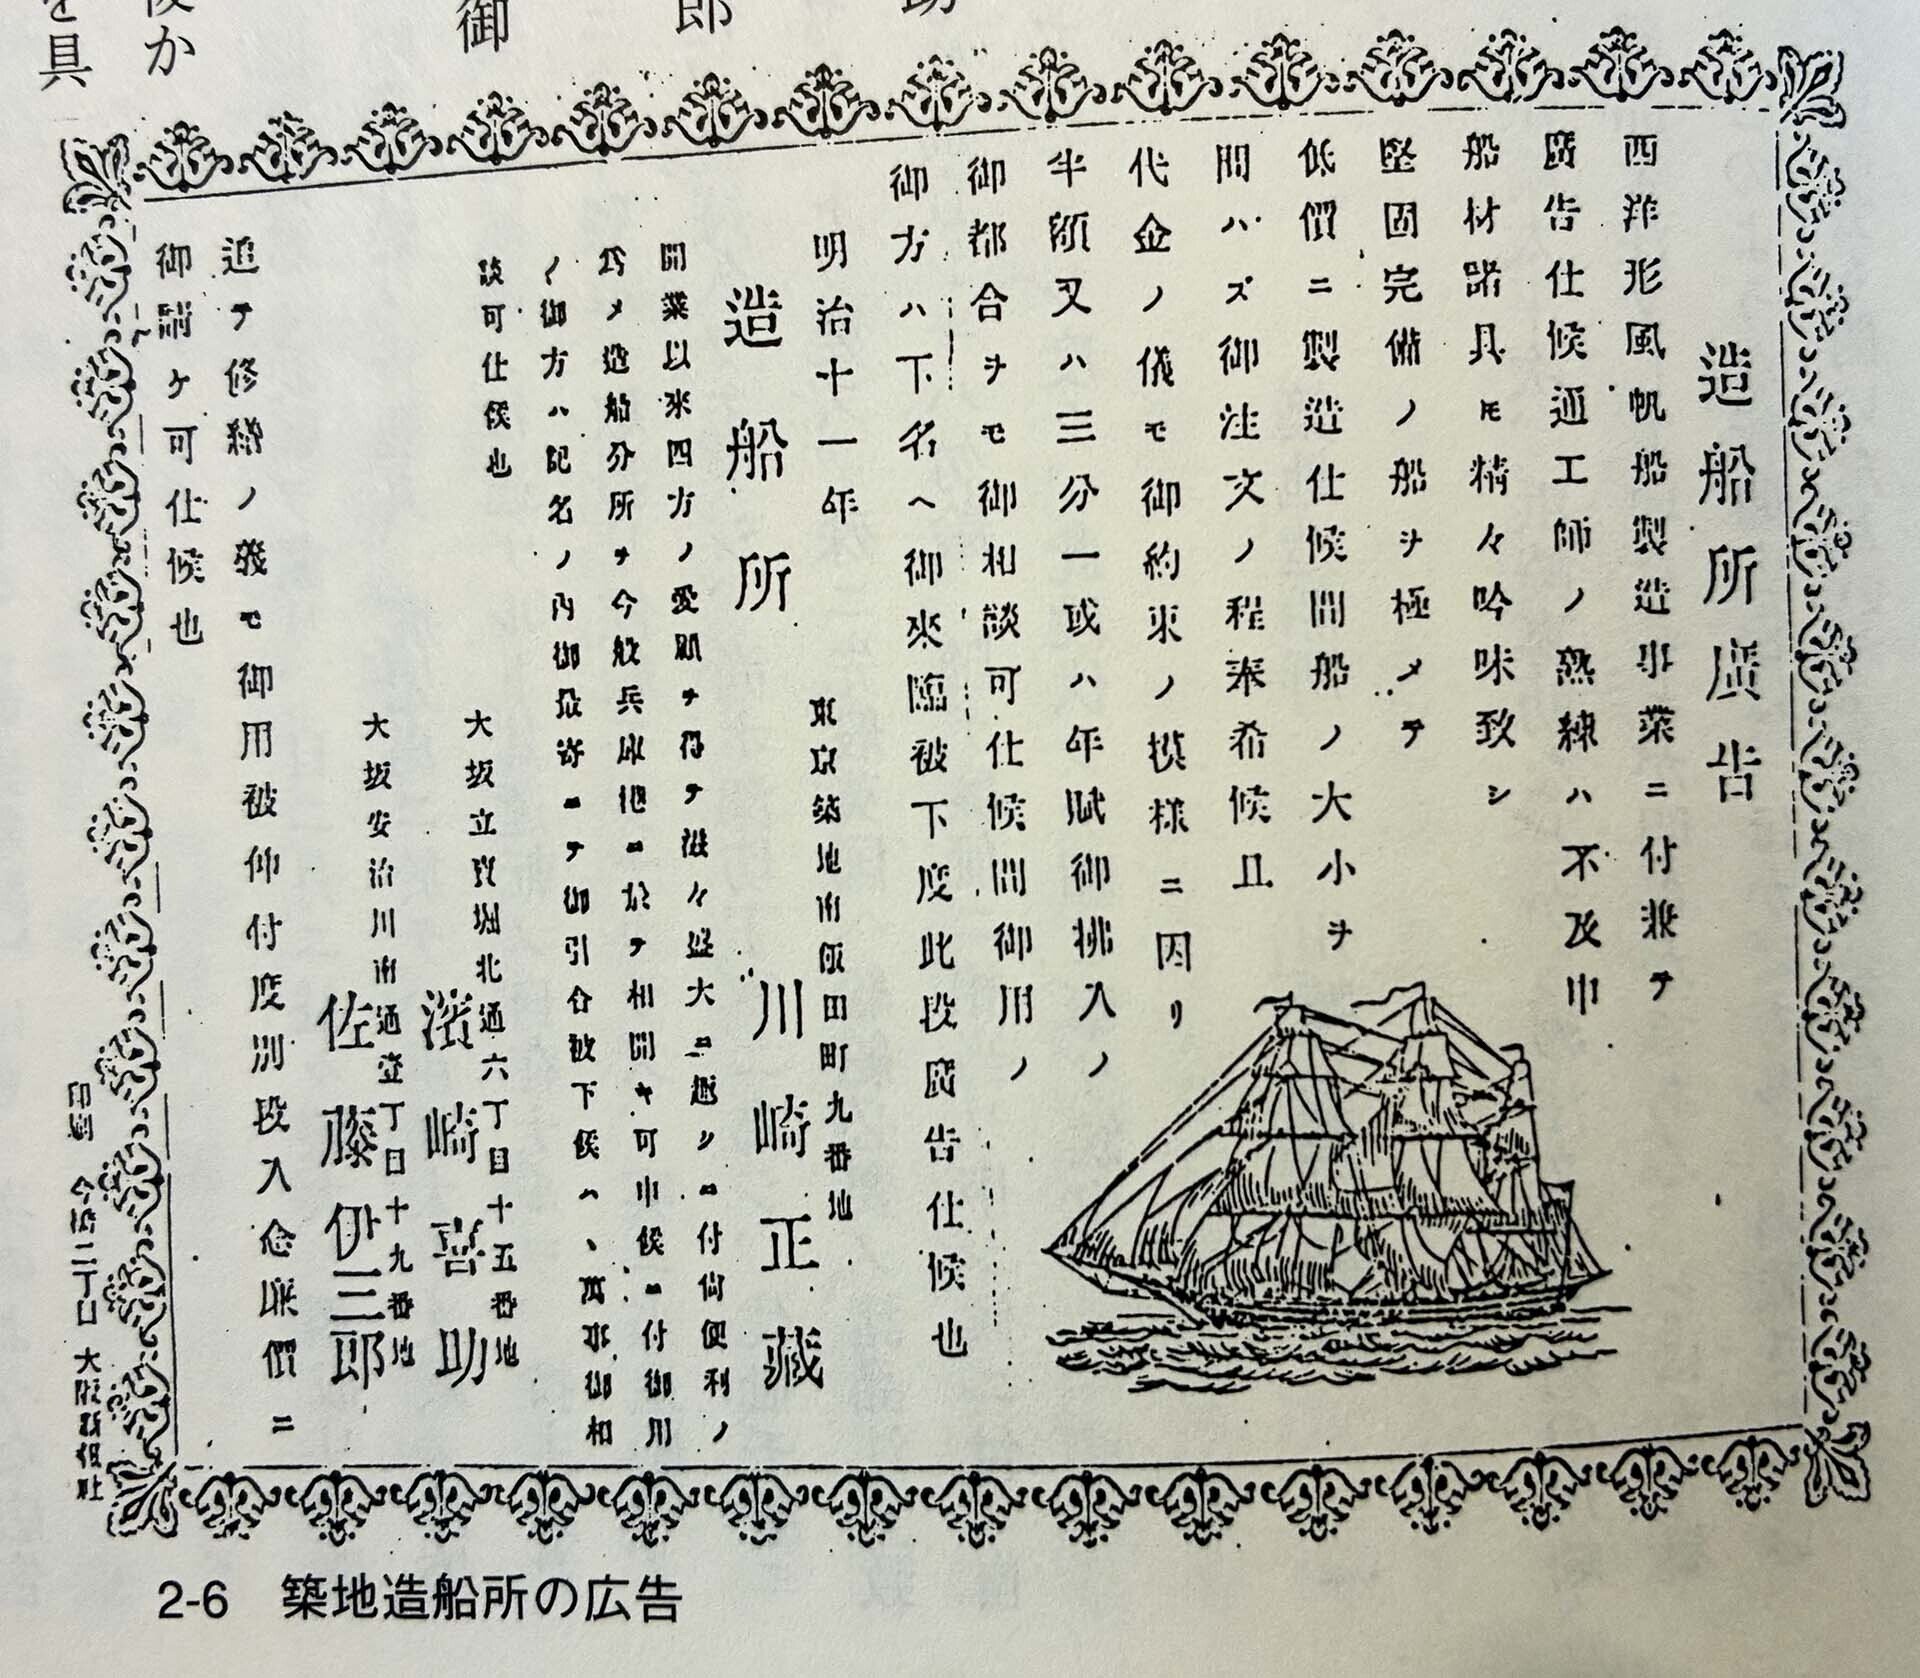 助
郎
御
か
を具
造船所廣告
西洋形風帆船製造事業ニ付兼テ
廣告仕候通工師ノ熟練ハ不及申
船材諸具モ精々吟味致シ
堅固完備ノ船ヲ極メテ
低價ニ製造仕候間船ノ大小ヲ
問ハズ御注文ノ程奉希候且
代金ノ儀モ御約束ノ摸様ニ因リ
半額又ハ三分一或ハ年賦御拂入ノ
御都合ヲモ御相談可仕候間御用ノ
御方ハ下名ヘ御來臨被下度此段廣告仕候也
明治十一年
東京築地南飯田町九番地
造船所 川崎正藏
開業以來四方ノ愛顧ヲ得テ滋々盛大ニ趣クニ付尚便利ノ
爲メ造船分所ヲ今般兵庫他ニ於テ相開キ可申候ニ付御用
ノ御方ハ記名ノ内御最寄ニテ御引合被下候ハヽ萬事御相
談可仕候也
大坂立賣堀北通六丁目十五番地
濱崎喜助
大坂安治川南通壹丁目十九番地
佐藤伊三郎
追テ修繕ノ義モ御用被仰付度別段入念廉價ニ
御請ケ可仕候也
今橋二丁目 大阪新報社
2-6 築地造船所の広告